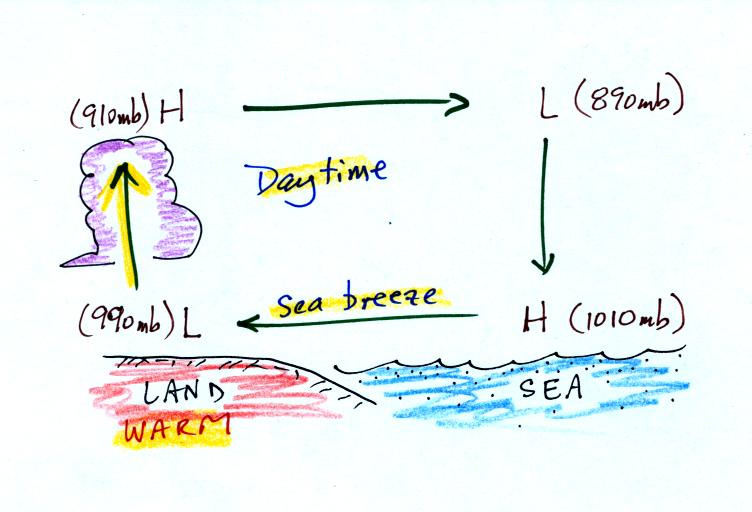 (910mb) H L (890mb)
Daytime
Sea breeze
(990mb) L H (1010mb)
LAND SEA
WARM